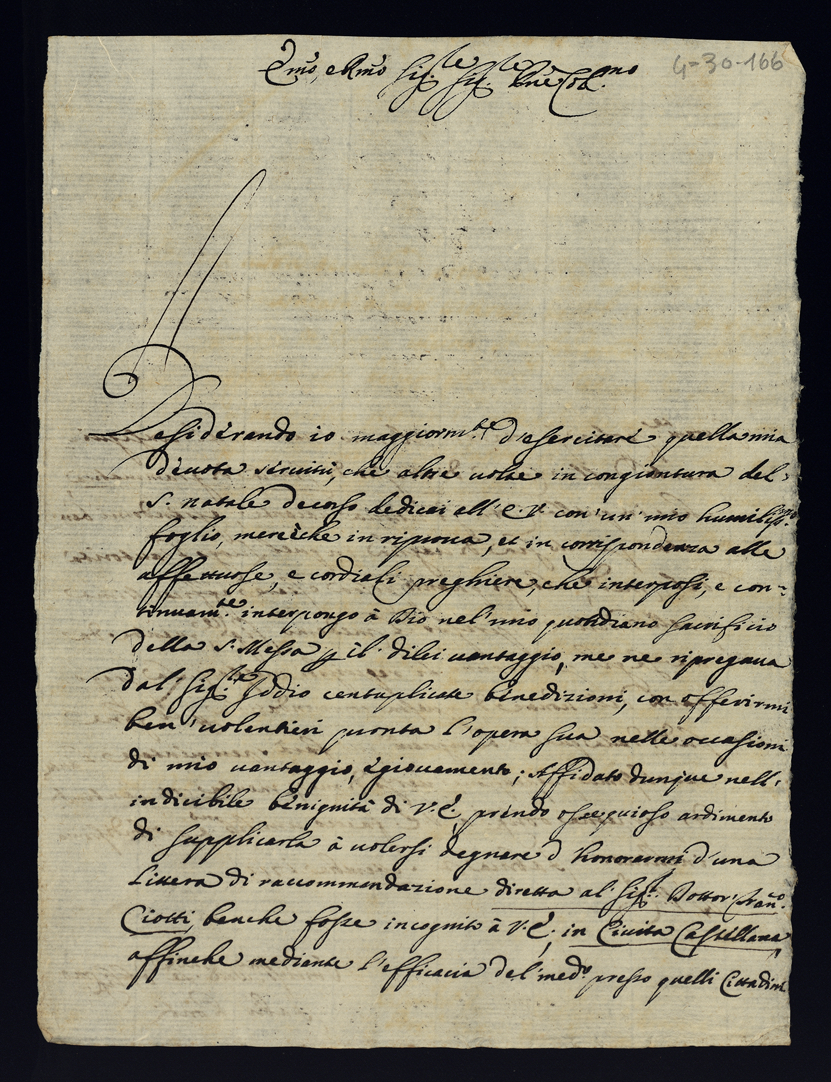 Emo, e Rmo Sig.re Sig.re Pne Col.mo
4-30-166
Desiderando io maggiorm.te d'esercitare quella mia
devota servitù, che altre volte in congiontura del
S. natale decorso dedicai all'E.V. con'un'mio humiliss.mo
foglio, mereèche in riprova, et in corrispondenza alle
affettuose, e cordiali preghiere, che interposi, e con=
tinuam.te interpongo à Dio nel'mio quotidiano sacrificio
della S. Messa p il' dilei vantaggio, me ne ripregava
dal' Sig.re Iddio centuplicate benedizioni, con offerirmi
ben'volentieri pronta l'opera sua nelle occasioni
di mio vantaggio, e giovamento; Affidato dunque nell'
indicibile benignità di V.E. prendo ossequioso ardimento
di supplicarla à volersi degnare d'honorarmi d'una
Littera di raccommandazione diretta al' Sig.r Dottor Fran.o
Ciotti, benche fosse incognito à V.E., in Civita Castellana
affinche mediante l'efficacia del' med.o presso quelli Cittadini